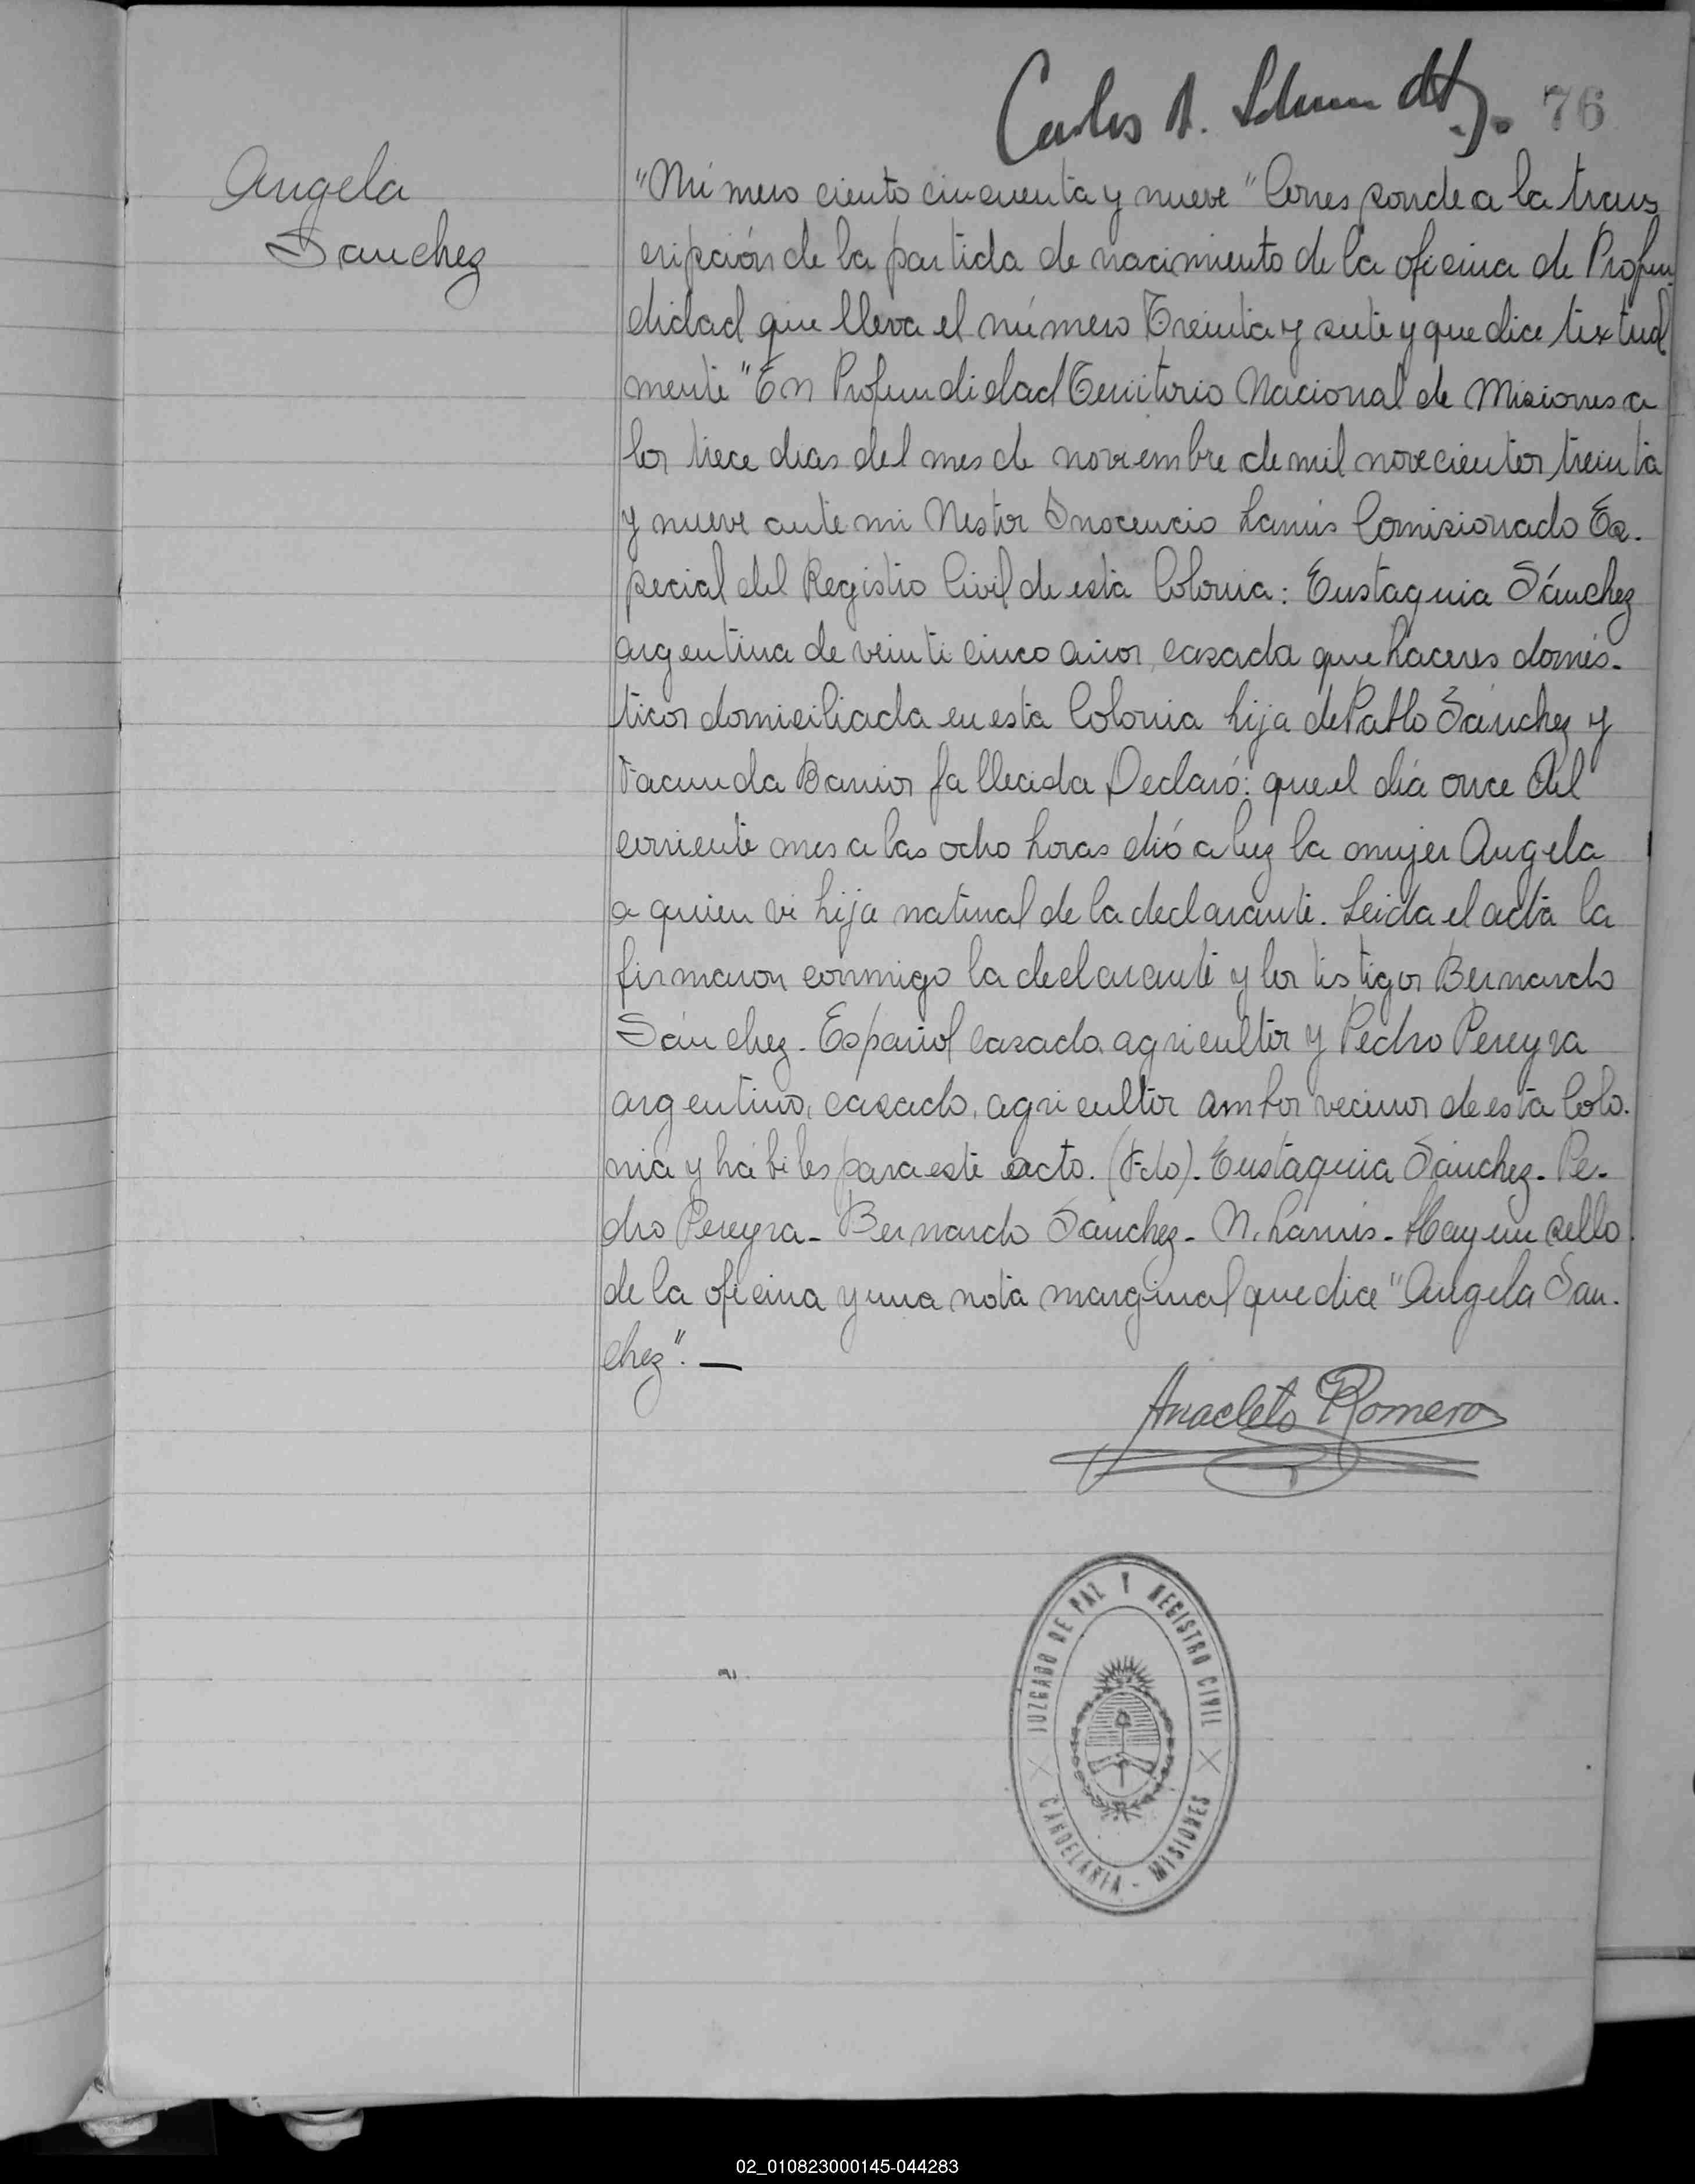 Carlos A. Schmidt 76
Angela
Sanchez
"Número ciento cincuenta y nueve" Corresponde a la trans
cripción de la partida de nacimiento de la oficina de Profun
didad que lleva el número Treinta y siete y que dice textual
mente "En Profundidad Territorio Nacional de Misiones a
los trece dias del mes de noviembre de mil novecientos treinta
y nueve ante mi Nestor Inocencio Lanús Comisionado Es-
pecial del Registro Civil de esta Colonia: Eustaquia Sánchez
argentina de veinticinco años, casada quehaceres domés-
ticos domiciliada en esta Colonia hija de Pablo Sánchez y
Facunda Barrios fallecida, Declaró: que el día once del
corriente mes a las ocho horas dió a luz la mujer Angela
a quien vi hija natural de la declarante. Leida el acta la
firmaron conmigo la declarante y los testigos Bernardo
Sánchez. Español casado, agricultor y Pedro Pereyra
argentino, casado, agricultor ambos vecinos de esta Colo-
nia y hábiles para este acto. (Fdo). Eustaquia Sánchez - Pe-
dro Pereyra - Bernardo Sanchez - N. Lanús - Hay un sello
de la oficina y una nota marginal que dice "Angela San-
chez". —
Anacleto Romero
JUZGADO DE PAZ Y REGISTRO CIVIL
CANDELARIA - MISIONES
02_010823000145-044283